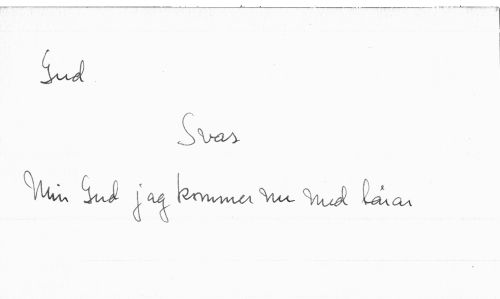 Gud
Svar
Min Gud jag kommer nu med tårar